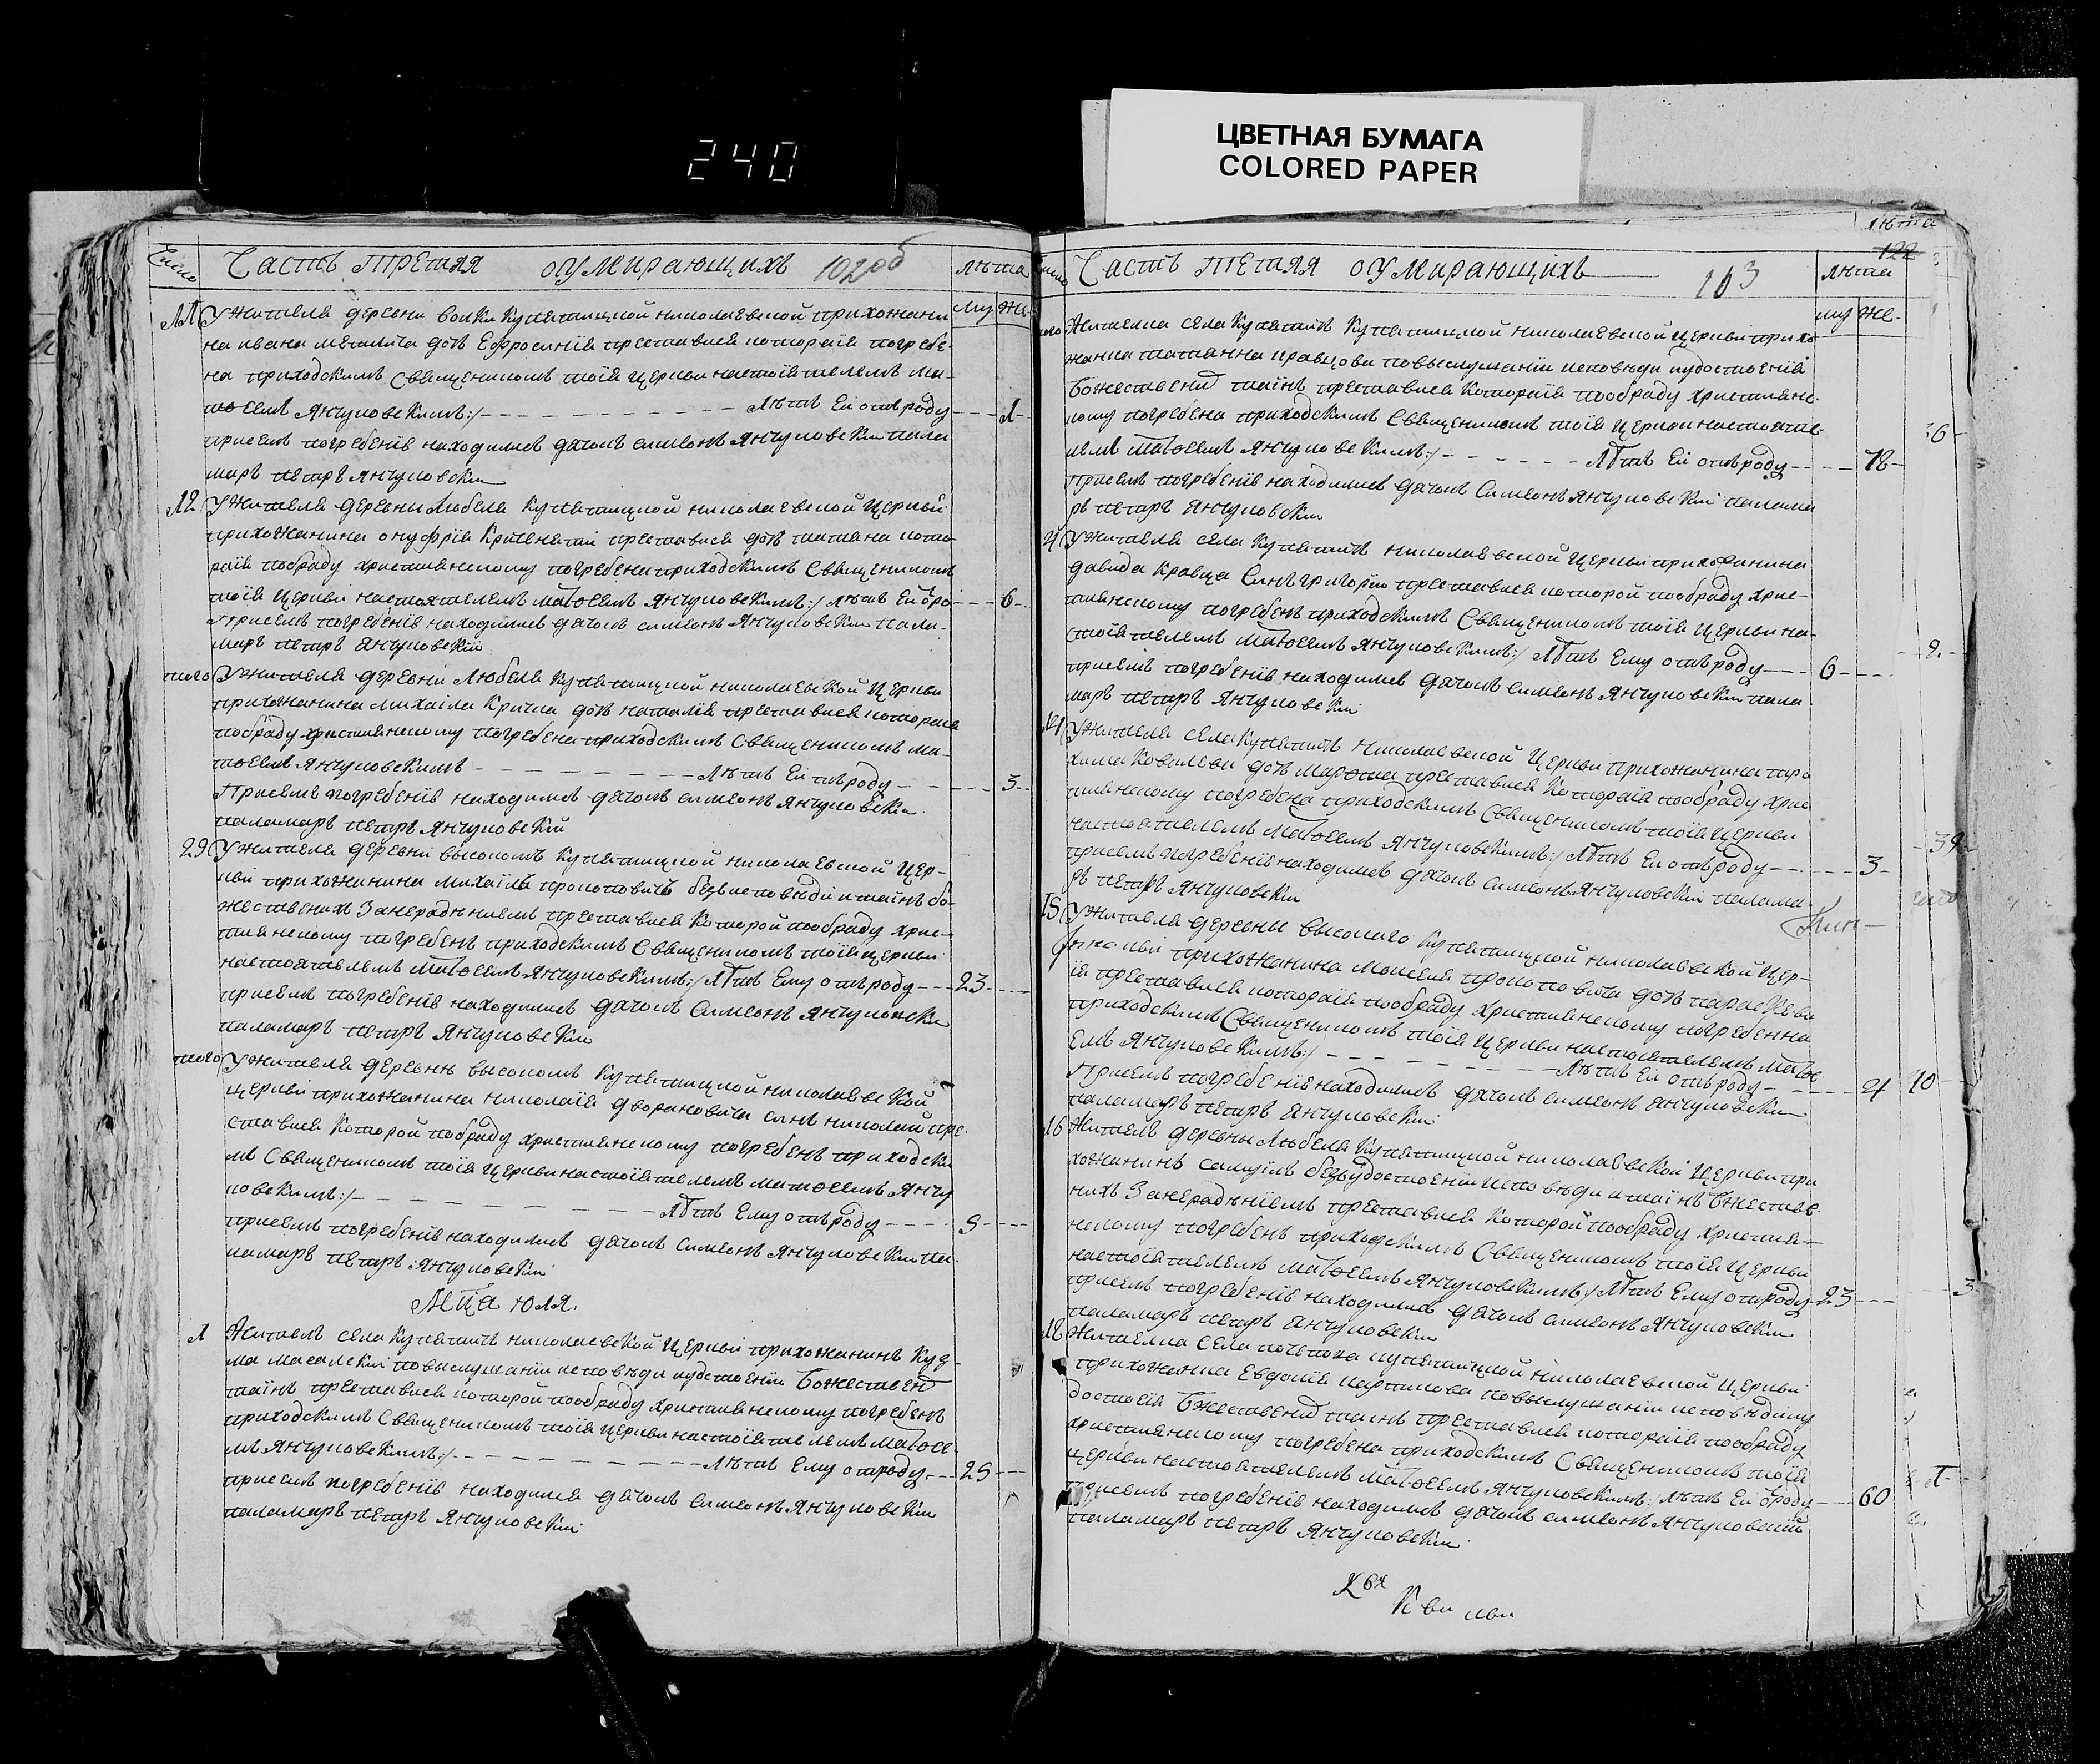 240
ЦВЕТНАЯ БУМАГА
COLORED PAPER
Число Часть третая оумирающихъ 102 об лѣта
му же
11 У жителя деревни волки Купятицкой николаевской прихожани
на ивана дочь Ефросинія преставися которая погребе
на приходскимъ Священикомъ тоія церкви настоятелемъ ма
тоеемъ Янчуковскимъ:/ лѣтъ Ей отъ роду 1
присемъ погребенію находились дячокъ симеонъ Янчуковскій пала
марь петръ Янчуковскій
12 У жителя деревны Любеля Купятицкой николаевской Церкви
прихожанина онуфрія преставися дочь татяна кото
рая пообраду християнскому погребена приходскимъ Священикомъ
тоія Церкви настоятелемъ Матоеемъ Янчуковскимъ:/ лѣтъ Ей 6
присемъ погребенію находились дячокъ симеонъ Янчуковскій пала
марь петръ Янчуковскій
того У жителя деревни Любеля Купятицкой николаевской Церкви
прихожанина михаила дочь наталія преставися которая
пообраду християнскому погребена приходскимъ Священикомъ ма
тоеемъ Янчуковскимъ лѣтъ Ей отъ роду 3
Присемъ погребенію находились дячокъ симеонъ Янчуковскій
паламарь петръ Янчуковскій
29 У жителя деревни высокомъ Купятицкой николаевской Цер
кви прихожанина михаилъ прокоповичъ безъ исповѣди и таинъ бо
жественихъ Занераденіемъ преставися Которой пообраду хрис
тиянскому погребенъ приходскимъ Священикомъ тоія церкви
настоятелемъ Матоеемъ Янчуковскимъ:/ Лѣтъ Ему отъ роду 23
присемъ погребенію находились дячокъ Симеонъ Янчуковскій
паламарь петръ Янчуковскій
того У жителя деревнѣ высокомъ Купятицкой николаевской
церкви прихожанина николая дворановича синъ николай пре
ставися Которой пообраду християнскому погребенъ приходски
мъ Священикомъ тоія Церкви настоятелемъ матоеемъ Янчу
ковскимъ:/ Лѣтъ Ему отъ роду
присемъ погребенію находились дячокъ Симеонъ Янчуковскій па
ламарь петръ Янчуковскій
Мца юля.
1 Житель села Купятичъ николаевской Церкви прихожанинъ Куз
ма масалскій повыслушаніи исповѣди Божествен
таинъ преставися которой пообраду християнскому погребенъ
приходскимъ Священикомъ тоія Церкви настоятелемъ Матоее
мъ Янчуковскимъ:/ лѣтъ Ему отроду 25
присемъ погребенію находился дячокъ симеонъ Янчуковскій
паламарь петръ Янчуковскій
лѣта
122
Часть тетая оумирающихъ 103 лѣта
му же
того Жителка села Купятичъ Купятицкой николаевской Церкви прихо
жанка татянна кравцова повыслушаніи исповѣди иудостоенія
Божествени таінъ преставися Которая пообраду християнс
кому погребена приходскимъ Священикомъ тоія Церкви настояте
лемъ Матоеемъ Янчуковскимъ:/ Лѣтъ Ей отъ роду
присемъ погребенію находились дячокъ Симеонъ Янчуковскій палама
рь петръ Янчуковскій
4 У жителя села Купятичъ николаевской Церкви прихожанина
давида Кравца Синъ григорій преставися которой пообраду хрис
тиянскому погребенъ приходскимъ Священикомъ тоія Церкви на
стоятелемъ Матоеемъ Янчуковскимъ:/ Лѣтъ Ему отъ роду 6
присемъ погребенію находились дячокъ симеонъ Янчуковскій пала
марь петръ Янчуковскій
У жителя села Купятичъ николаевской Церкви прихожанина тро
хима дочь Мароа преставися Которая пообраду хрис
тиянскому погребена приходскимъ Священикомъ тоія Церкви
настоятелемъ Матоеемъ Янчуковскимъ:/ Лѣтъ Ей отъ роду 3
присемъ погребенію находились дячокъ симеонъ Янчуковскій палама
рь петръ Янчуковскій
15 У жителя деревны высокого Купятицкой николаевской Цер
кви прихожанина Моисея прокоповича дочь параскева
преставися которая пообраду християнскому погребенна
приходскимъ Священикомъ тоія Церкви настоятелемъ Матое
емъ Янчуковскимъ:/ Лѣтъ Ей отъ роду 4
Присемъ погребенію находились дячокъ симеонъ Янчуковскій
паламарь петръ Янчуковскій
16 Житель деревны Любеля Купятицкой николаевской Церкви при
хожанинъ самуилъ безъ удостоенія исповѣди и таінъ Бжествен
нихъ Занераденіемъ преставися Которой пообраду християн
скому погребенъ приходскимъ Священикомъ тоія Церкви
настоятелемъ Матоеемъ Янчуковскимъ:/ Лѣтъ Ему отроду 23
присемъ погребенію находились дячокъ симеонъ Янчуковскій
паламарь петръ Янчуковскій
18 Жителка Села купятицкой николаевской Церкви
прихожанка Евдокія повыслушаніи исповѣди иу
достоенія Бжествени таинъ преставися которая пообраду
християнскому погребена приходскимъ Священикомъ тоія
церкви настоятелемъ Матоеемъ Янчуковскимъ:/ лѣтъ Ей роду 60
присемъ погребенію находились дячокъ симеонъ Янчуковскій
паламарь петръ Янчуковскій